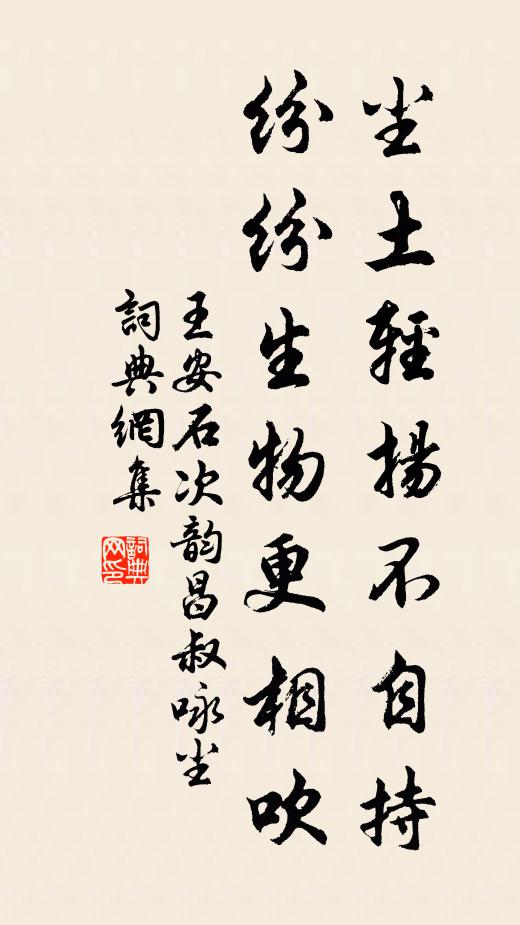 尘土輕揚不自持
紛紛生物更相吹
王安石次韵昌叔咏尘
詞典網集
詞典网印